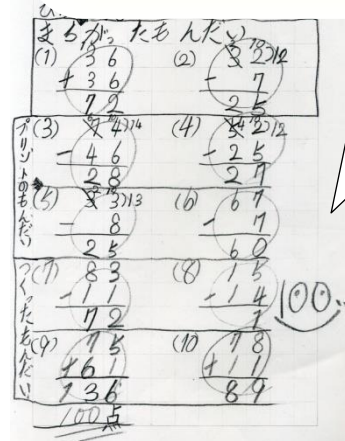 まちがったもんだい
(1) 36
+ 36
72
(2) 32 12
- 7
25
プリントのもんだい
(3) 74 14
- 46
28
(4) 52 12
- 25
27
(5) 33 13
- 8
25
(6) 67
- 7
60
つくったもんだい
(7) 83
- 11
72
(8) 15
- 14
1
(9) 75
+ 61
136
(10) 78
+ 11
89
100
100点